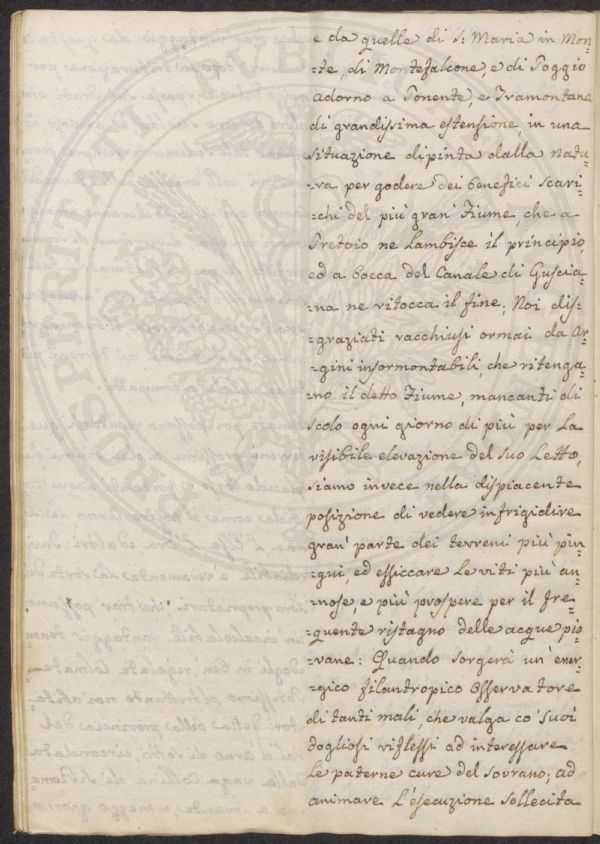 e da quelle di S: Maria in Mon-
-te, di Montefalcone, e di Poggio
adorno a Ponente, e Tramontana
di grandissima estensione, in una
situazione dipinta dalla natu-
-ra per godere dei benefici scari-
-chi del più gran' Fiume, che a
Pretoio ne lambisce il principio,
ed a bocca del Canale di Guscia-
-na ne ritocca il fine; Noi dis-
-graziati racchiusi ormai da Ar-
-gini insormontabili, che ritenga-
-no il detto Fiume, mancanti di
scolo ogni giorno di più per la
visibile elevazione del suo Letto,
siamo invece nella dispiacente
posizione di vedere infrigidire
gran' parte dei terreni più pin-
-gui, ed essiccare le viti più an-
-nose, e più prospere per il fre-
-quente ristagno delle acque pio-
-vane: Quando sorgerà un' ener-
-gico filantropico Osservatore
di tanti mali, che valga co' suoi
dogliosi riflessi ad interessare
le paterne cure del Sovrano; ad
animare l'esecuzione sollecita